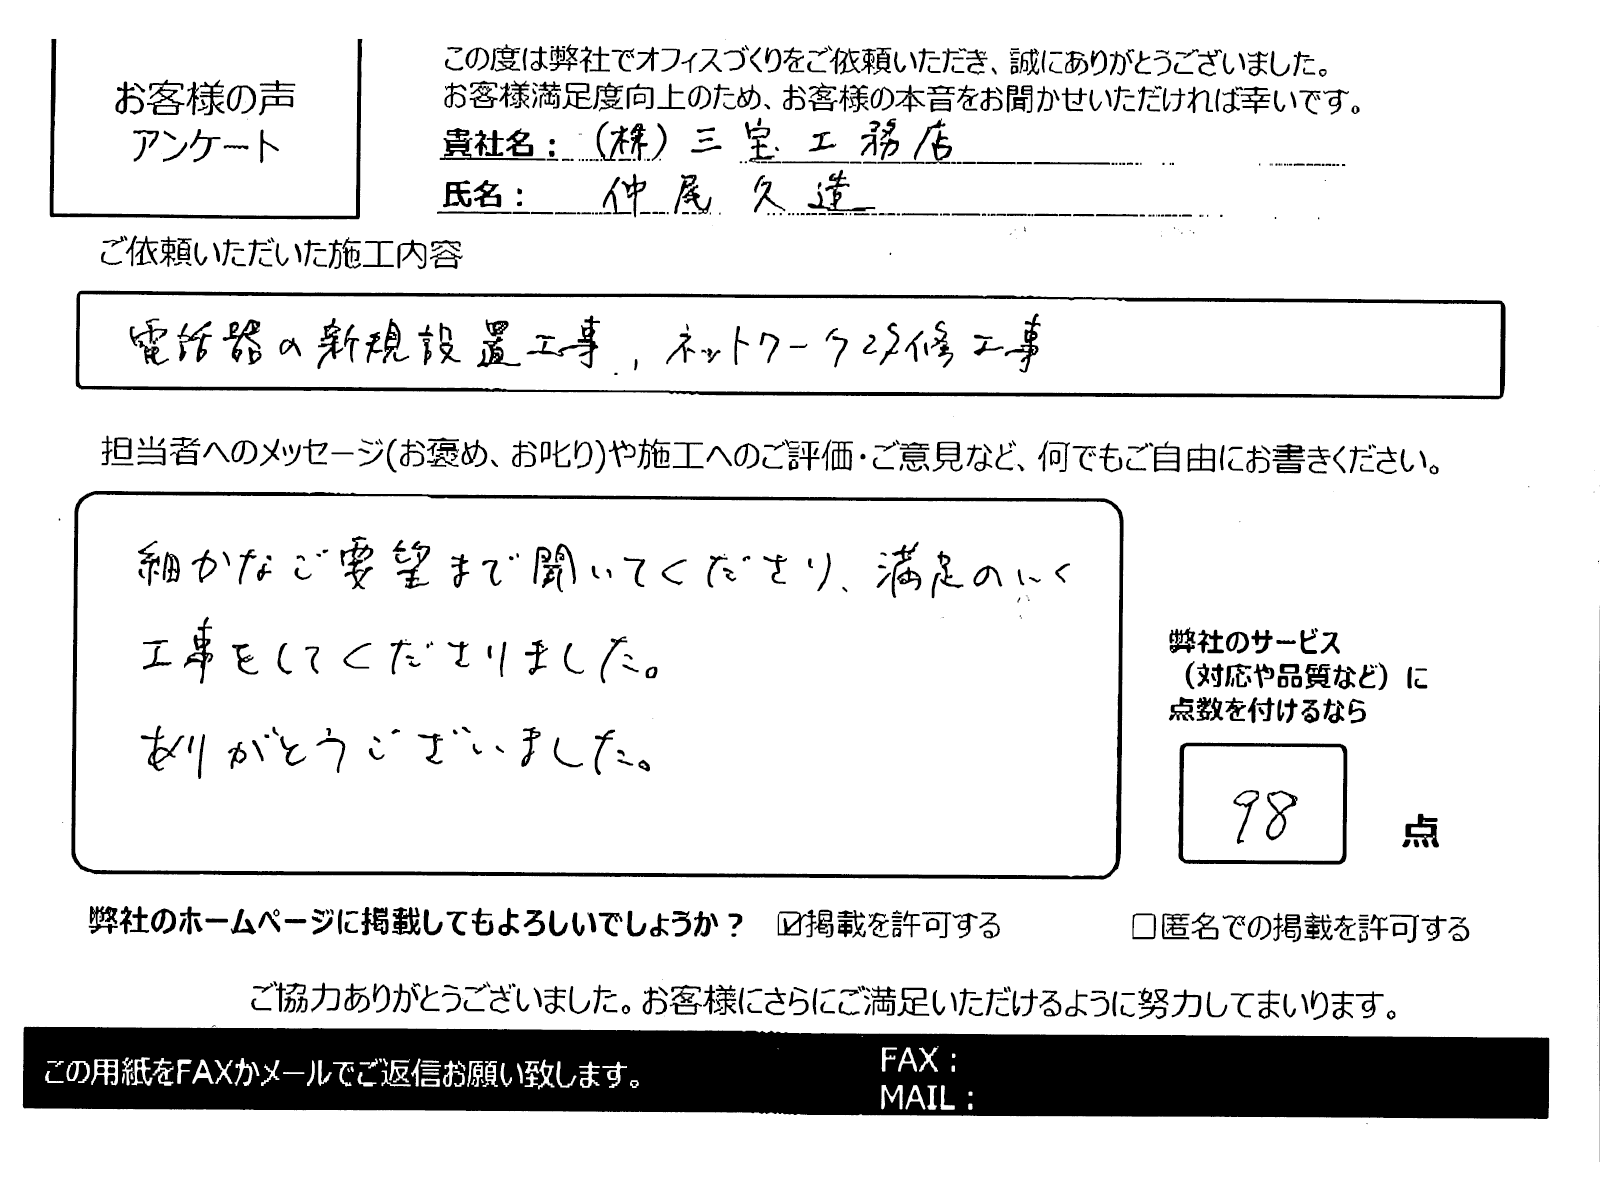 お客様の声
アンケート
この度は弊社でオフィスづくりをご依頼いただき、誠にありがとうございました。
お客様満足度向上のため、お客様の本音をお聞かせいただければ幸いです。
貴社名： (株) 三宝工務店
氏名： 仲尾久造
ご依頼いただいた施工内容
電話器の新規設置工事, ネットワーク改修工事
担当者へのメッセージ(お褒め、お叱り)や施工へのご評価・ご意見など、何でもご自由にお書きください。
細かなご要望まで聞いてくださり、満足のいく
工事をしてくださりました。
ありがとうございました。
弊社のサービス
（対応や品質など）に
点数を付けるなら
98 点
弊社のホームページに掲載してもよろしいでしょうか？ ☑掲載を許可する □匿名での掲載を許可する
ご協力ありがとうございました。お客様にさらにご満足いただけるように努力してまいります。
この用紙をFAXかメールでご返信お願い致します。
FAX：
MAIL：